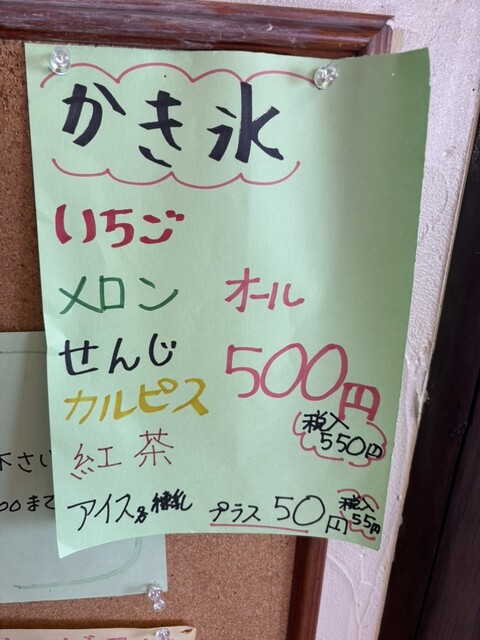 かき氷
いちご
メロン オール
せんじ 500円
カルピス
税入
550円
紅茶
アイス 練乳 プラス 50円
税入
55円
下さい
00まで